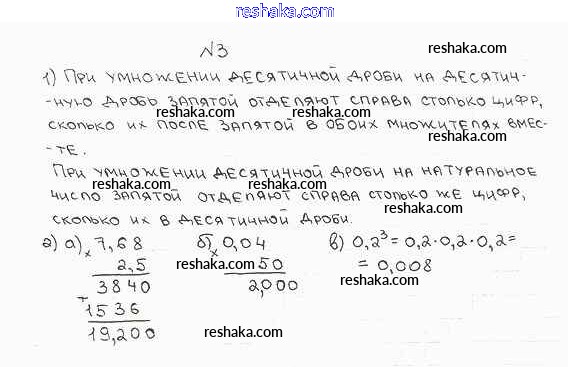 reshaka.com
№3
reshaka.com
1) При умножении десятичной дроби на десятич-
reshaka.com
-ную дробь запятой отделяют справа столько цифр,
reshaka.com
сколько их после запятой в обоих множителях вмес-
-те.
reshaka.com
При умножении десятичной дроби на натуральное
reshaka.com
число запятой отделяют справа столько же цифр,
reshaka.com
сколько их в десятичной дроби.
reshaka.com
2) а) × 7,68 б) × 0,04 в) 0,2³ = 0,2·0,2·0,2 =
2,5 50 = 0,008
reshaka.com reshaka.com
3840 2,000
+
1536
19,200
reshaka.com
reshaka.com